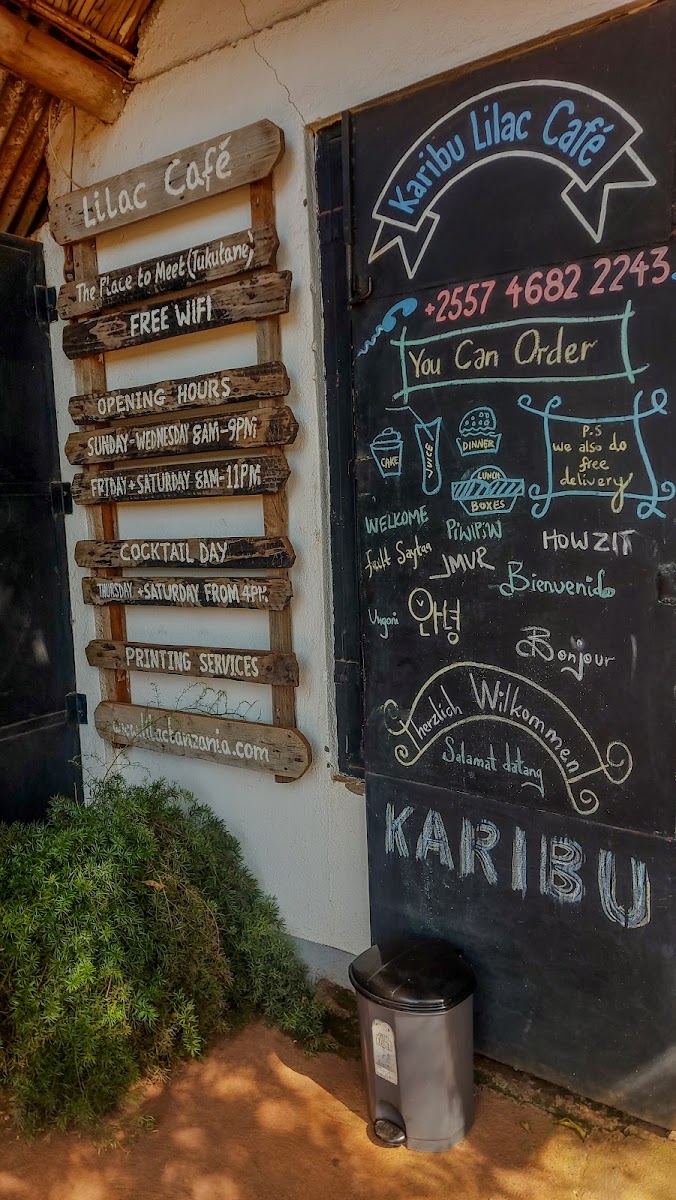 Lilac Café
The Place to Meet (Tukutane)
FREE WIFI
OPENING HOURS
SUNDAY-WEDNESDAY 8AM-9PM
FRIDAY+SATURDAY 8AM-11PM
COCKTAIL DAY
THURSDAY +SATURDAY FROM 4PM
PRINTING SERVICES
www.lilactanzania.com
Karibu Lilac Café
+2557 4682 2243
You Can Order
CAKE
JUICE
DINNER
LUNCH
BOXES
P.S
we also do
free
delivery
WELCOME
PiWPiW
HOWZIT
JMVR
Bienvenido
안녕
Bonjour
herzlich Willkommen
Salamat datang
KARIBU